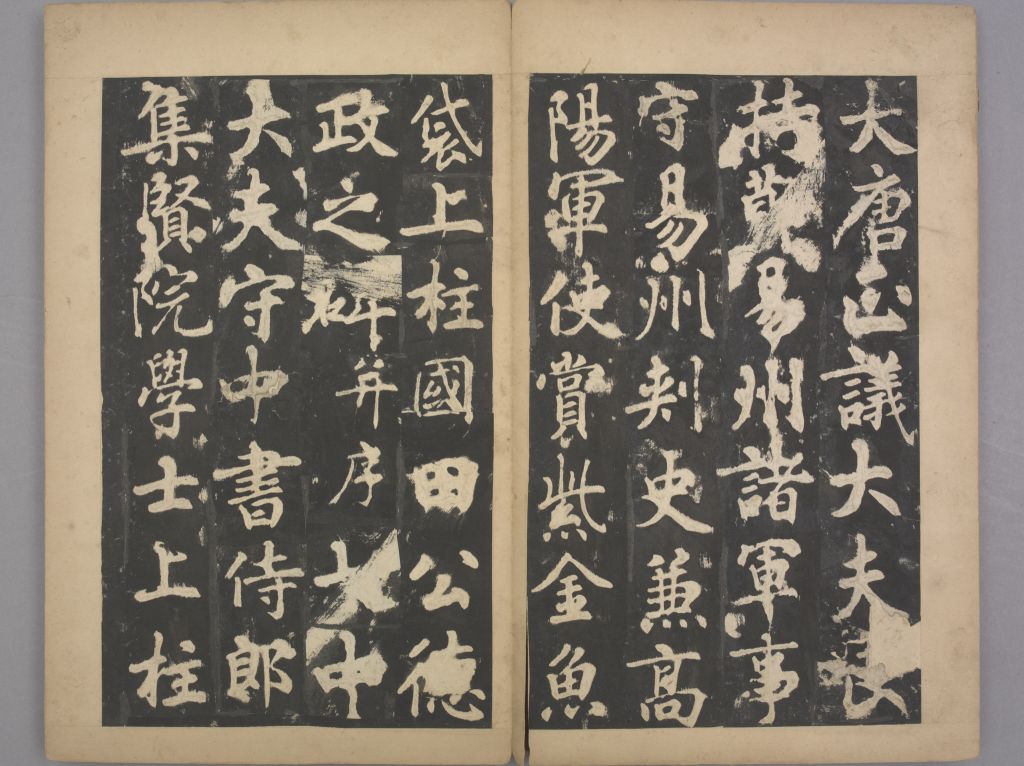 大唐正議大夫
持節易州諸軍事
守易州刺史兼高
陽軍使賞紫金魚
袋上柱國田公德
政之碑并序 中
大夫守中書侍郎
集賢院學士上柱